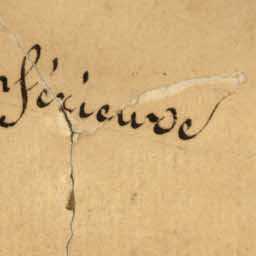 nférieure